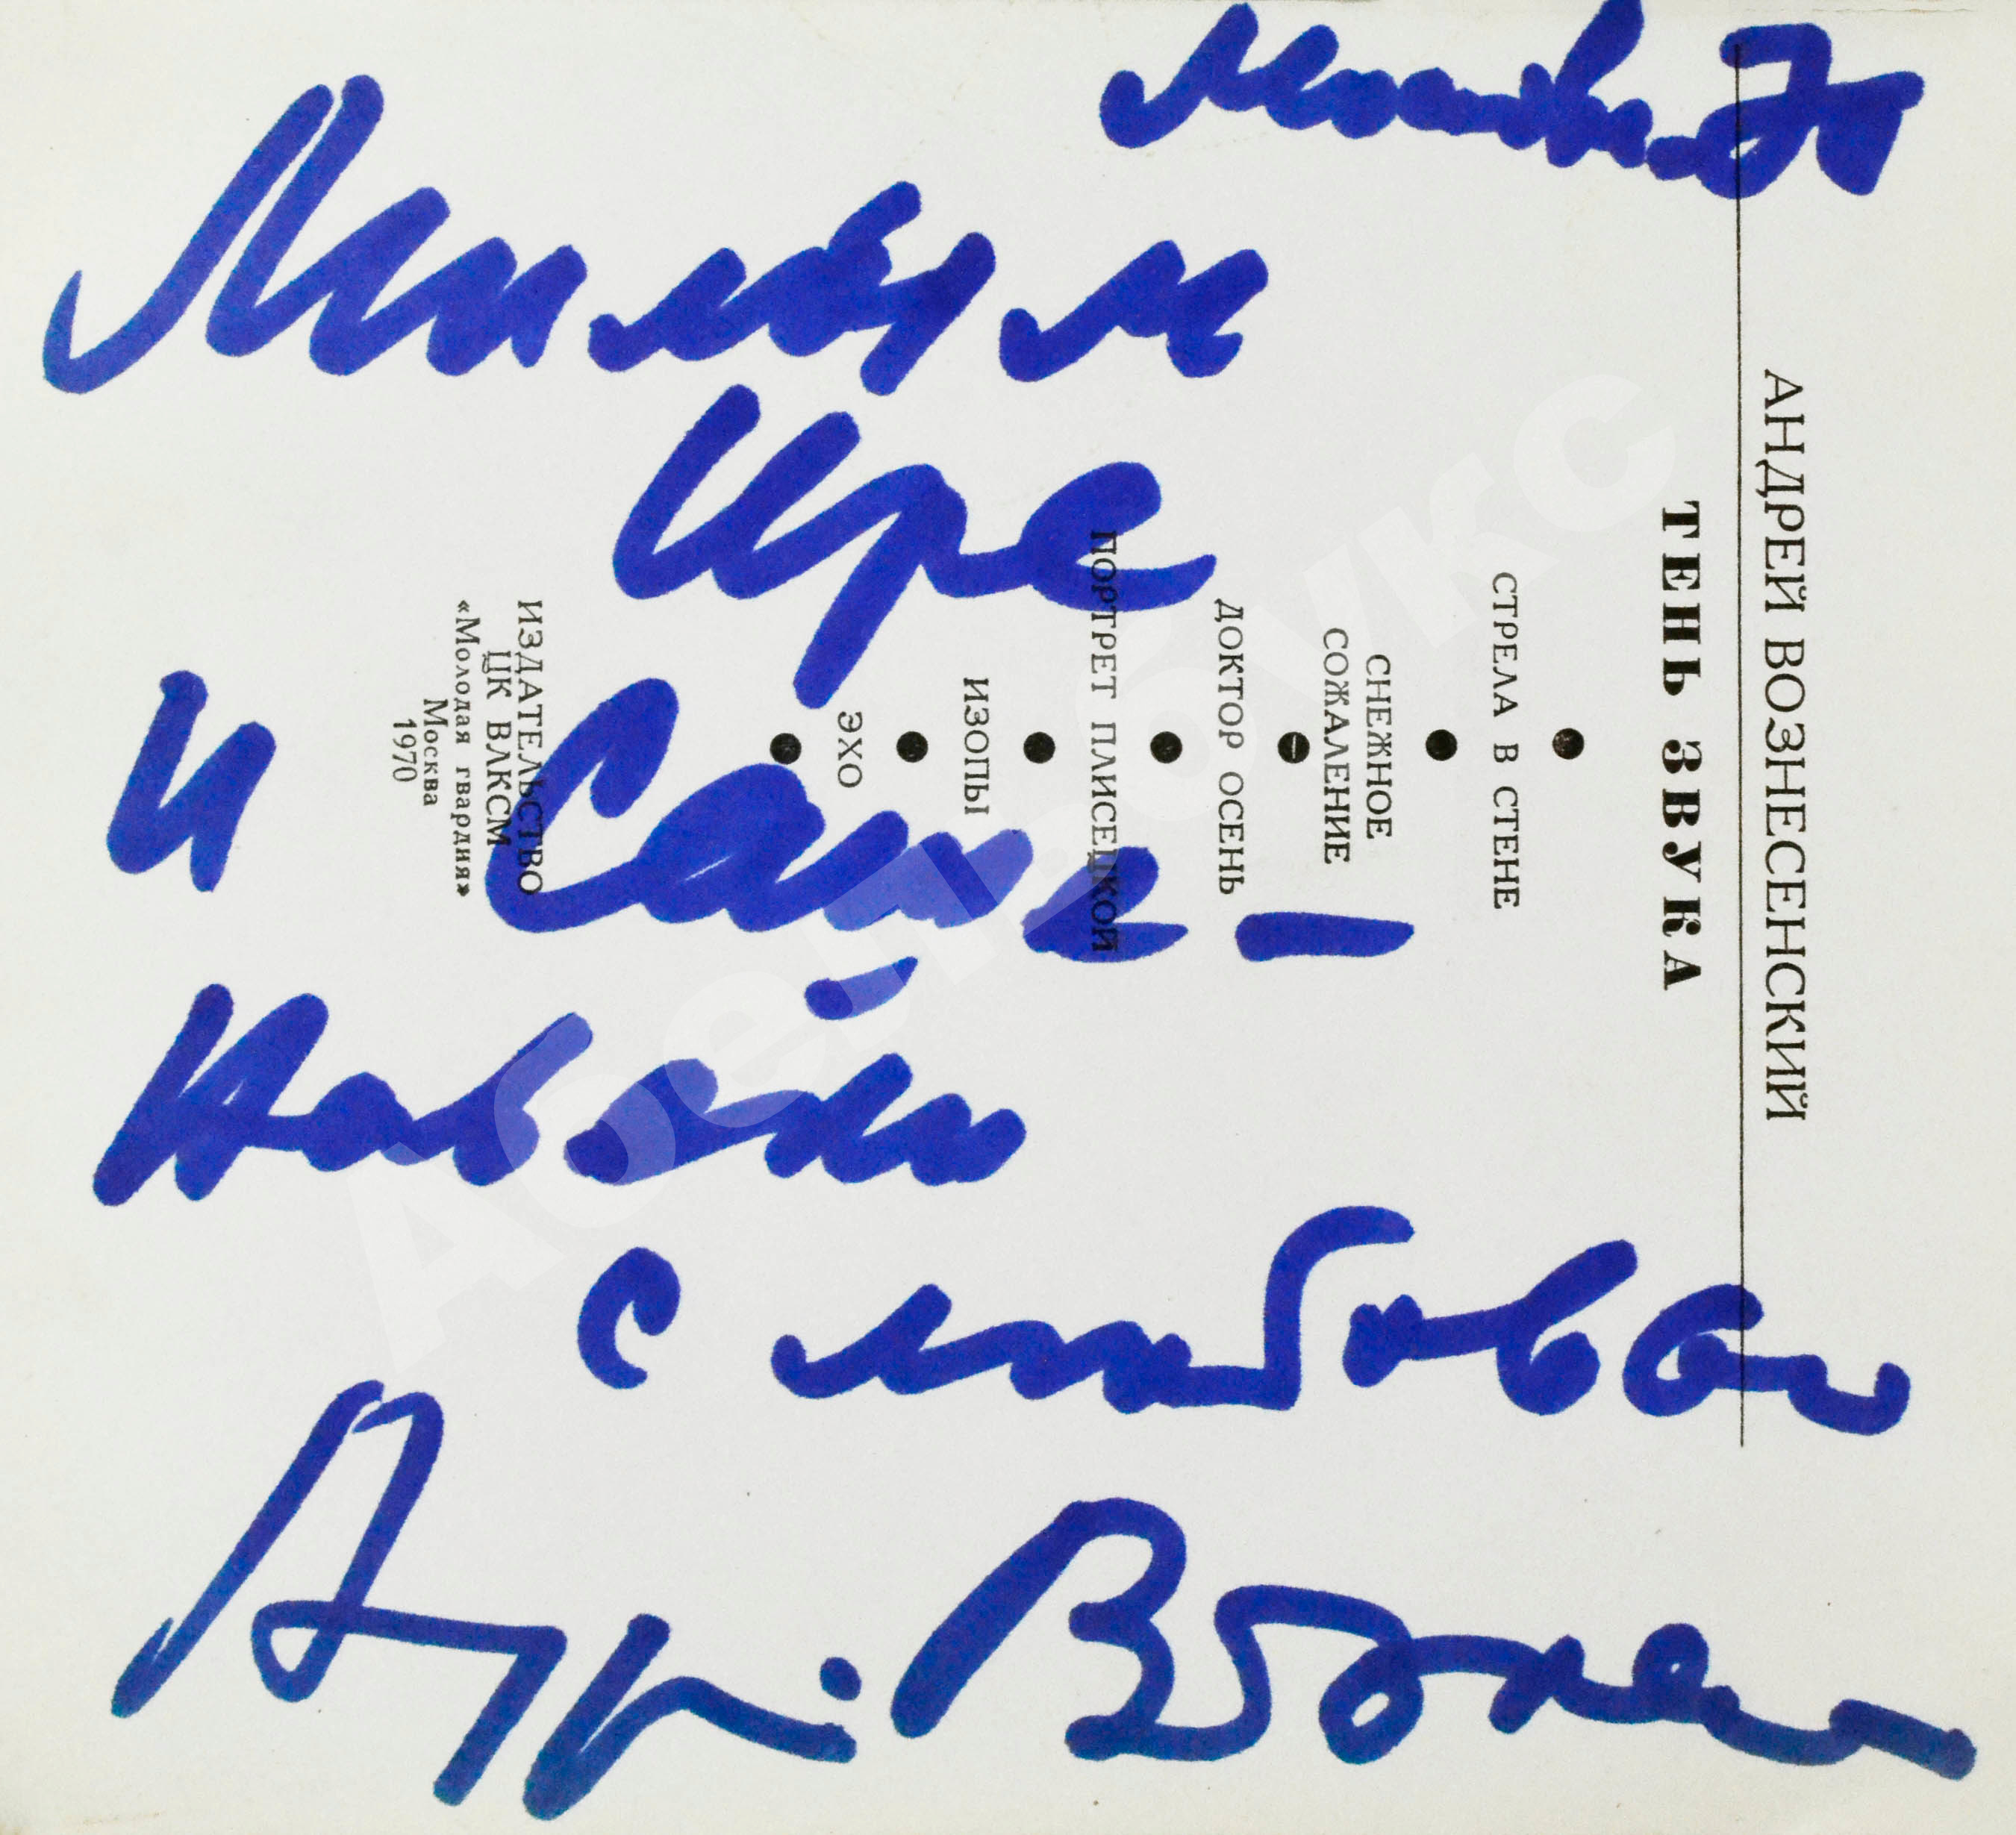 Милым
Ире
и Саше —
Наваши
с любовью
Андрей Вознесенский
АНДРЕЙ ВОЗНЕСЕНСКИЙ
ТЕНЬ ЗВУКА
СТРЕЛА В СТЕНЕ
СНЕЖНОЕ
СОЖАЛЕНИЕ
ДОКТОР ОСЕНЬ
ПОРТРЕТ ПЛИСЕЦКОЙ
ИЗОПЫ
ЭХО
ИЗДАТЕЛЬСТВО
ЦК ВЛКСМ
«Молодая гвардия»
Москва
1970